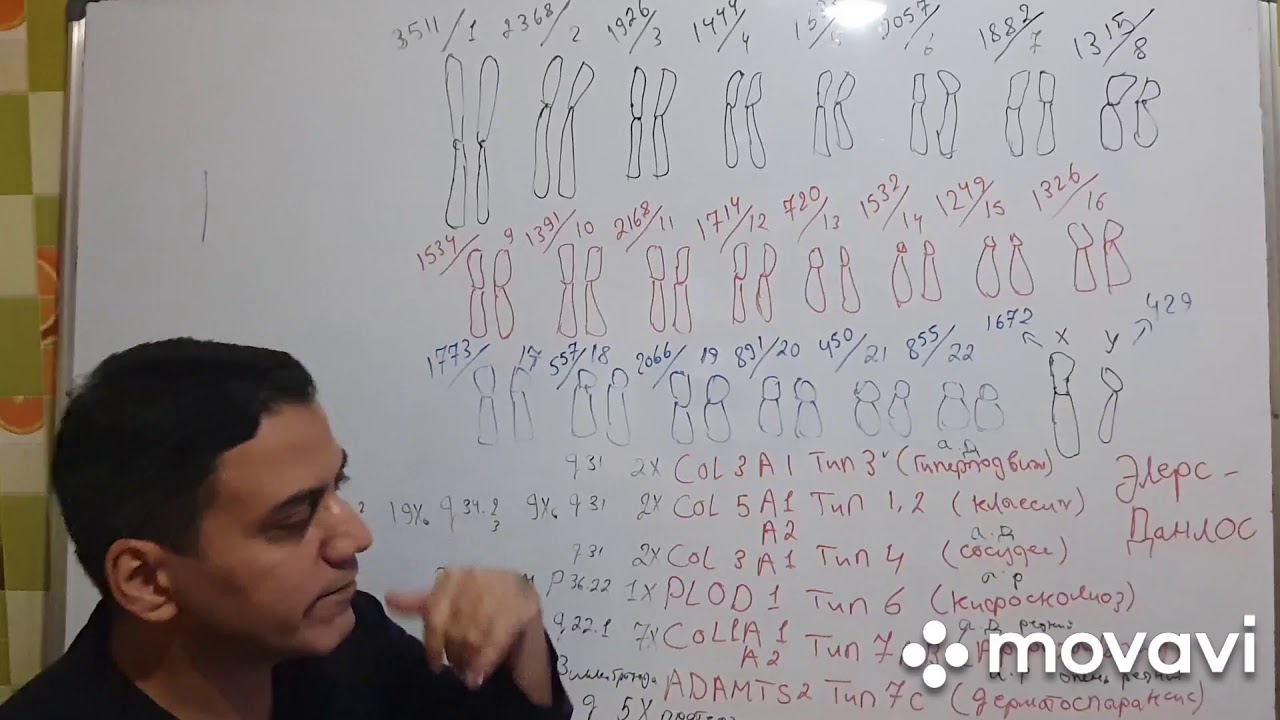 3511/1 2368/2 1926/3 1444/4 2057/6 1882/7 1315/8
1534/9 1391/10 2168/11 1714/12 720/13 1532/14 1249/15 1326/16
1773/17 557/18 2066/19 891/20 450/21 855/22 1672 X Y 429
а.д
q31 2х COL 3 A 1 Тип 3 (Гиперподвиж)
19х q34.2 9х q31 2х COL 5 A 1 Тип 1,2 (классич)
3 A2
а.д
q31 2х COL 3 A 1 Тип 4 (сосудис)
а.р
p36.22 1х PLOD 1 Тип 6 (кифосколиоз)
а.д редкий
q.22.1 7х COL1A 1 Тип 7
A2
а.р очень редкий
ADAMTS2 Тип 7c (дерматоспараксис)
q 5х
Элерс-
Данлос
movavi